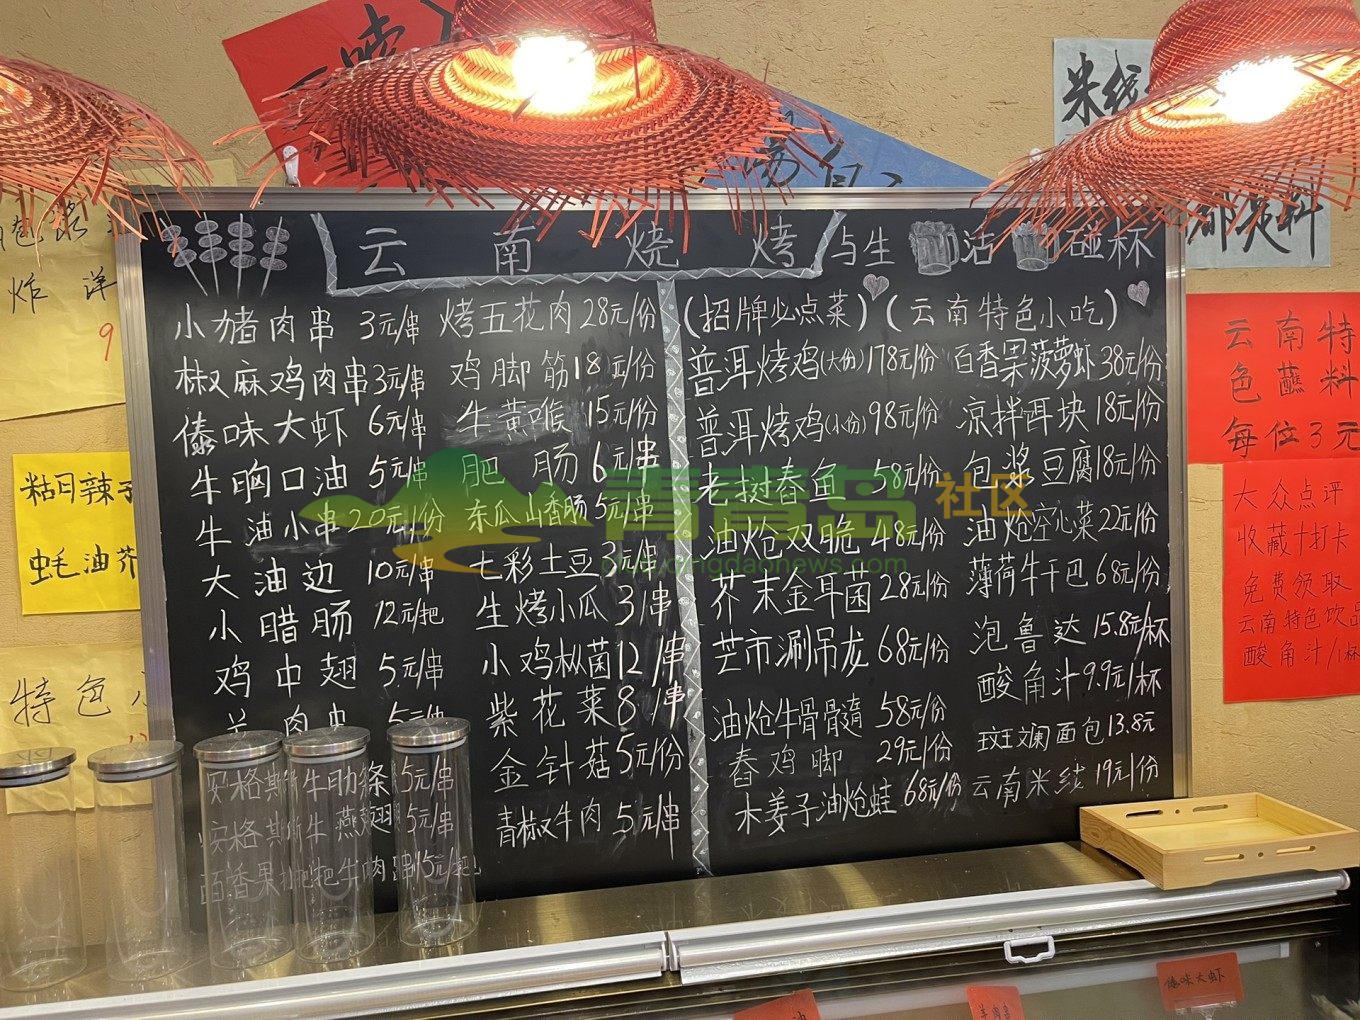 云南烧烤与生活碰杯
小猪肉串 3元/串
椒麻鸡肉串 3元/串
傣味大虾 6元/串
牛胸口油 5元/串
牛油小串 20元/份
大油边 10元/串
小腊肠 12元/把
鸡中翅 5元/串
羊肉串 5元/串
安格斯牛肋条 5元/串
安格斯牛燕翅 5元/串
百香果 把牛肉串 15元/把
烤五花肉 28元/份
鸡脚筋 18元/份
牛黄喉 15元/份
肥肠 6元/串
东瓜山香肠 5元/串
七彩土豆 3元/串
生烤小瓜 3/串
小鸡枞菌 12/串
紫花菜 8/串
金针菇 5元/份
青椒牛肉 5元/串
(招牌必点菜)
普洱烤鸡(大份) 178元/份
普洱烤鸡(小份) 98元/份
老挝舂鱼 58元/份
油炝双脆 48元/份
芥末金耳菌 28元/份
芒市涮吊龙 68元/份
油炝牛骨髓 58元/份
舂鸡脚 29元/份
木姜子油炝蛙 68元/份
(云南特色小吃)
百香果菠萝虾 38元/份
凉拌饵块 18元/份
包浆豆腐 18元/份
油炝空心菜 22元/份
薄荷牛干巴 68元/份
泡鲁达 15.8元/杯
酸角汁 9.9元/杯
玟王斓面包 13.8元
云南米线 19元/份
米线
都是料
云南特
色蘸料
每位3元
大众点评
收藏+打卡
免费领取
云南特色饮品
酸角汁/1杯
包浆
炸洋
9
蚝油芥
特色
傣味大虾
青青岛社区
qingdaonews.com